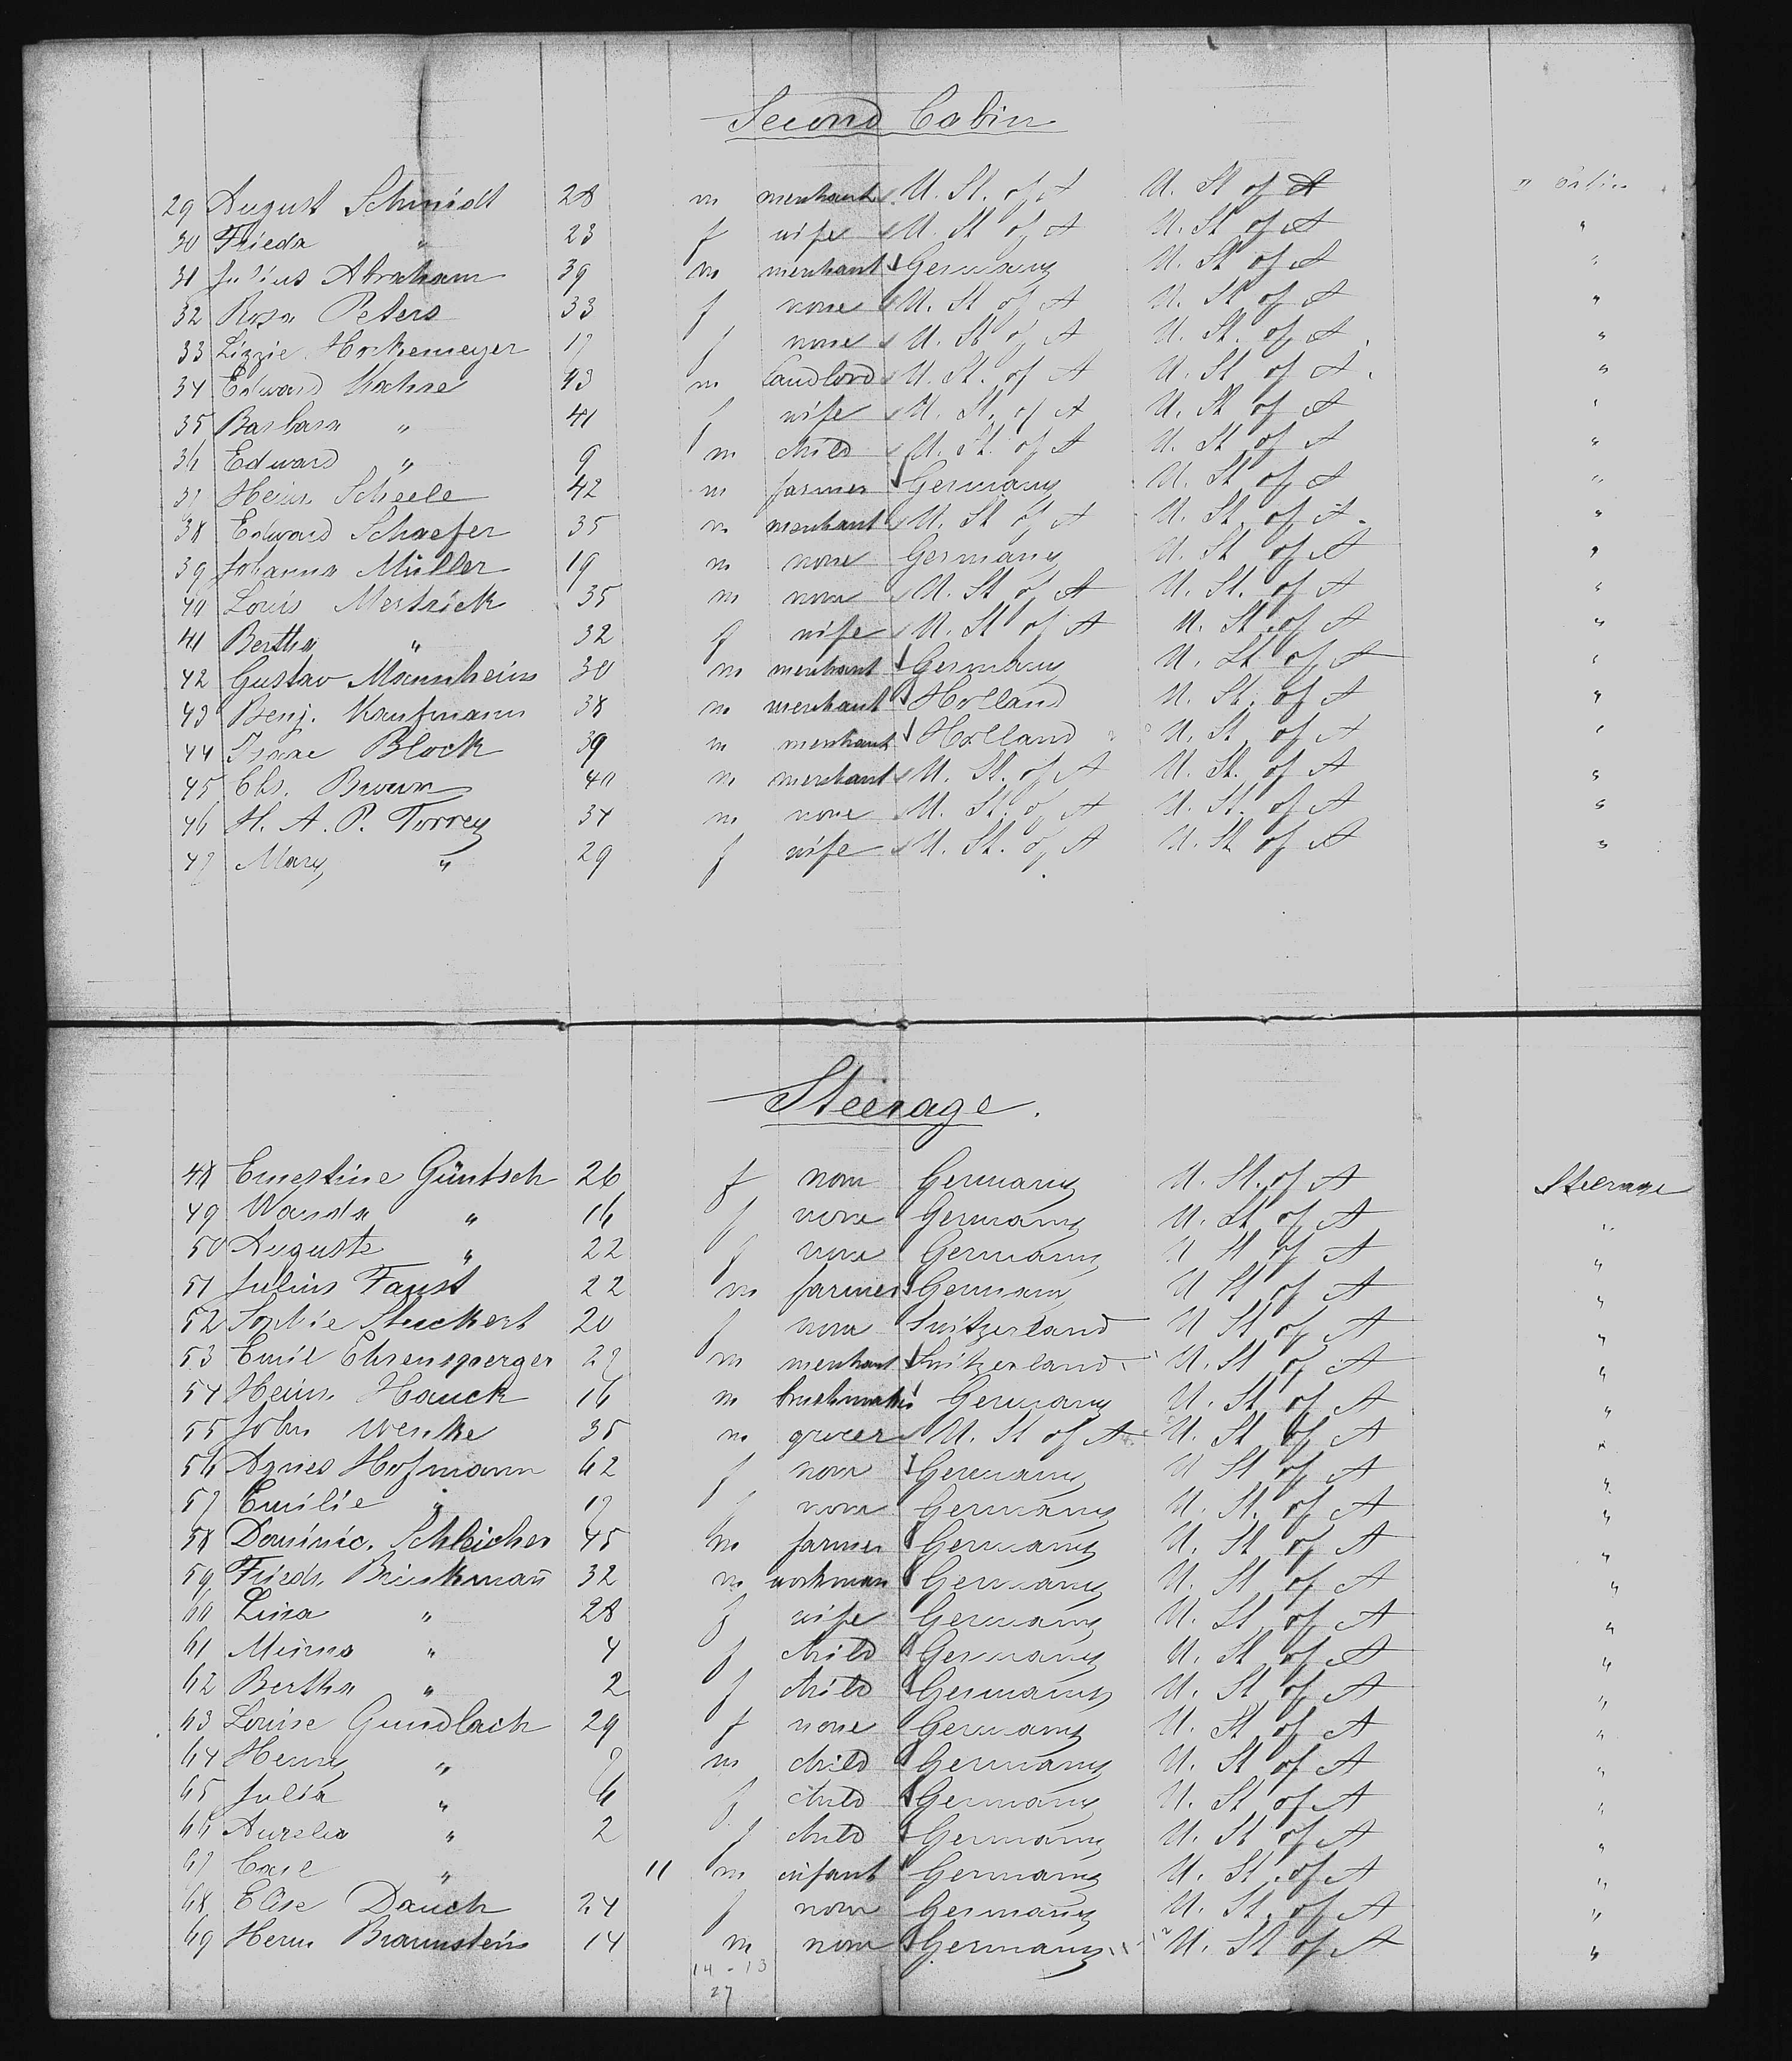 Second Cabin
29 August Schmidt 28 m merchant U. St. of A U. St of A
30 Frieda " 23 f wife U. St of A U. St of A "
31 Julius Abraham 39 m merchant Germany U. St of A "
32 Rosa Peters 33 f none U. St of A U. St of A "
33 Lizzie Hockemeyer 17 f none U. St of A U. St. of A "
34 Edward Kohne 43 m landlord U. St. of A U. St of A "
35 Barbara " 41 f wife U. St. of A U. St of A "
36 Edward " 9 m child U. St. of A U. St of A "
37 Heinr. Scheele 42 m farmer Germany U. St of A "
38 Edward Schaefer 35 m merchant U. St of A U. St. of A "
39 Johanna Müller 19 m none Germany U. St of A "
40 Louis 35 m none U. St of A U. St. of A "
41 Bertha " 32 f wife U. St of A U. St. of A "
42 Gustav Mannheim 30 m merchant Germany U. St of A "
43 Benj. Kaufmann 38 m merchant Holland U. St. of A "
44 Isaac Block 39 m merchant Holland U. St. of A "
45 Chs. Braun 40 m merchant U. St. of A U. St. of A "
46 H. A. P. Torrey 34 m none U. St. of A U. St. of A "
47 Mary " 29 f wife U. St. of A U. St. of A "
Steerage.
48 Ernestine Güntsch 26 f none Germany U. St. of A Steerage
49 Wanda " 16 f none Germany U. St of A "
50 Auguste " 22 f none Germany U St of A "
51 Julius Faust 22 m farmer Germany U St of A "
52 Sophie Stuckert 20 f none Switzerland U St of A "
53 Emil Ehrensperger 27 m merchant Switzerland U. St of A "
54 Heinr. Hauck 16 m Germany U. St of A "
55 John Wenke 35 m grocer U. St of A U. St of A "
56 Agnes Hofmann 62 f none Germany U St of A "
57 Emilie " 17 f none Germany U. St. of A "
58 Dominic. Schleicher 45 m farmer Germany U. St of A "
59 Friedr. Brinkmañ 32 m workman Germany U. St of A "
60 Lina " 28 f wife Germany U. St of A "
61 Minna " 4 f child Germany U. St of A "
62 Bertha " 2 f child Germany U. St of A "
63 Louise Gundlach 29 f none Germany U. St of A "
64 Henry " 7 m child Germany U. St of A "
65 Julia " 6 f child Germany U. St of A "
66 Aurelia " 2 f child Germany U. St of A "
67 Carl " 11 m infant Germany U. St. of A "
68 Elise Dauch 24 f none Germany U. St. of A "
69 Herm Braunstein 14 m none Germany U. St of A "
14 - 13
27